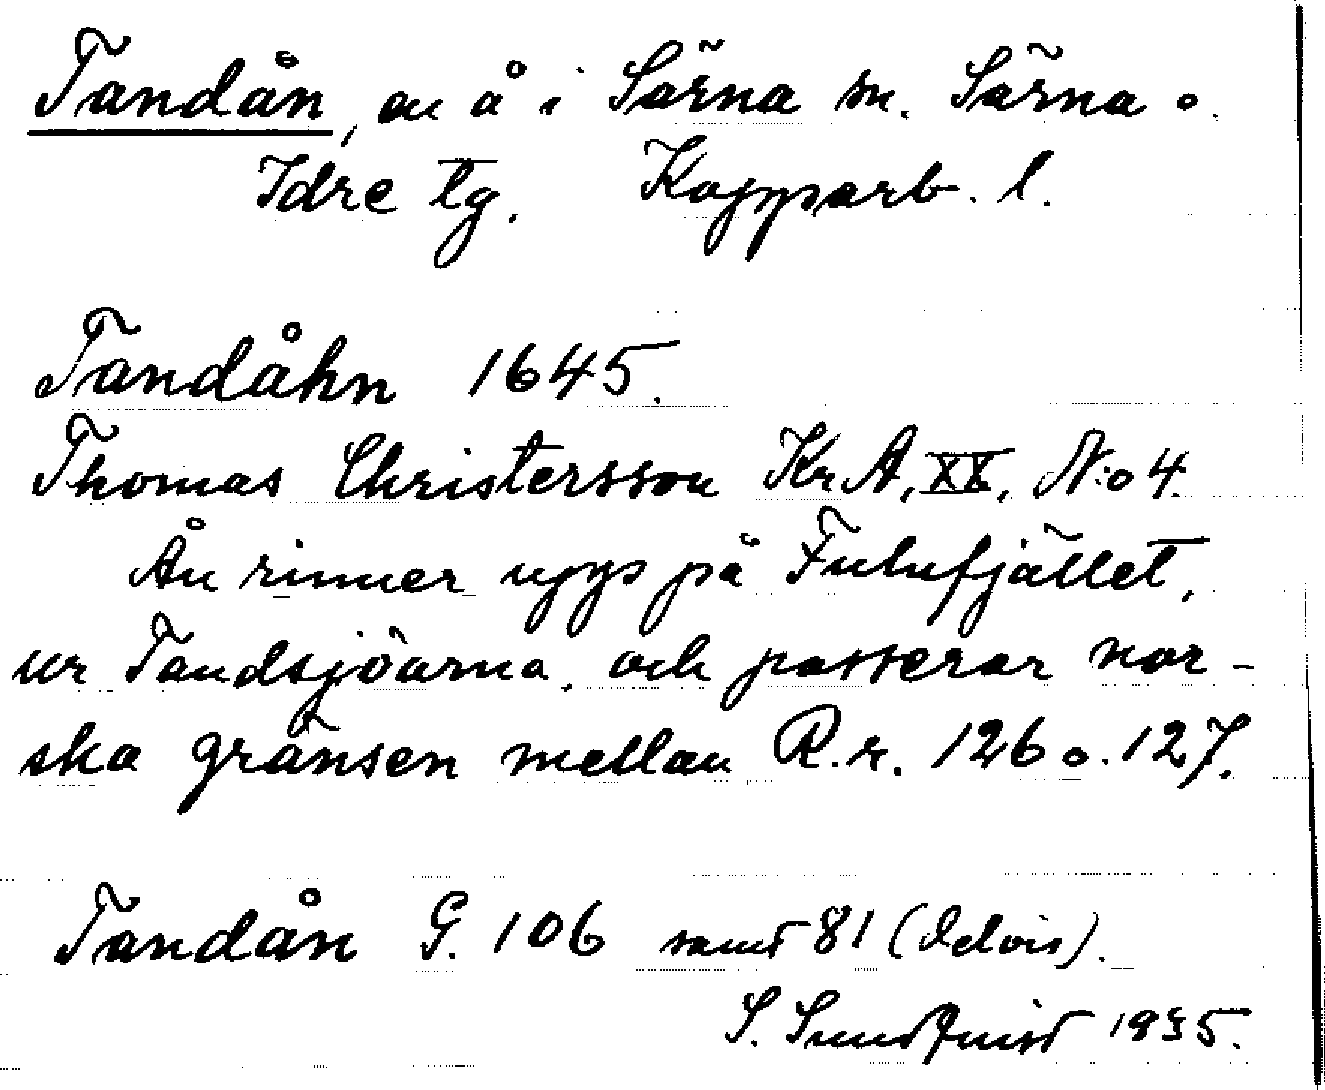 Tandån, en å i Särna sn. Särna o.
Idre tg. Kopparb. l.
Tandåhn 1645.
Thomas Christersson Kr. A, XX, N:o 4.
Ån rinner upp på Fulufjället,
ur Tandsjöarna, och passerar nor-
ska gränsen mellan R.r. 126 o. 127.
Tandån G. 106 samt 81 (delvis).
S. Sundquist 1935.